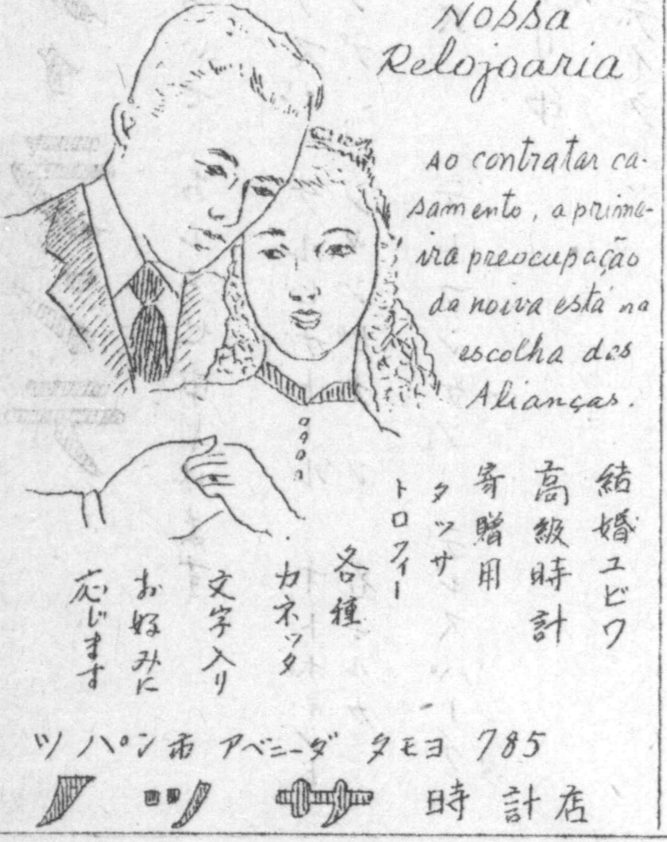 Nossa
Relojoaria
Ao contratar ca-
samento, a prime-
ira preocupação
da noiva está na
escolha das
Alianças.
結婚ユビワ
高級時計
寄贈用
タッサ
トロフィー
各種
カネッタ
文字入り
お好みに
応じます
ツパン市 アベニーダ タモヨ 785
ノッサ 時計店